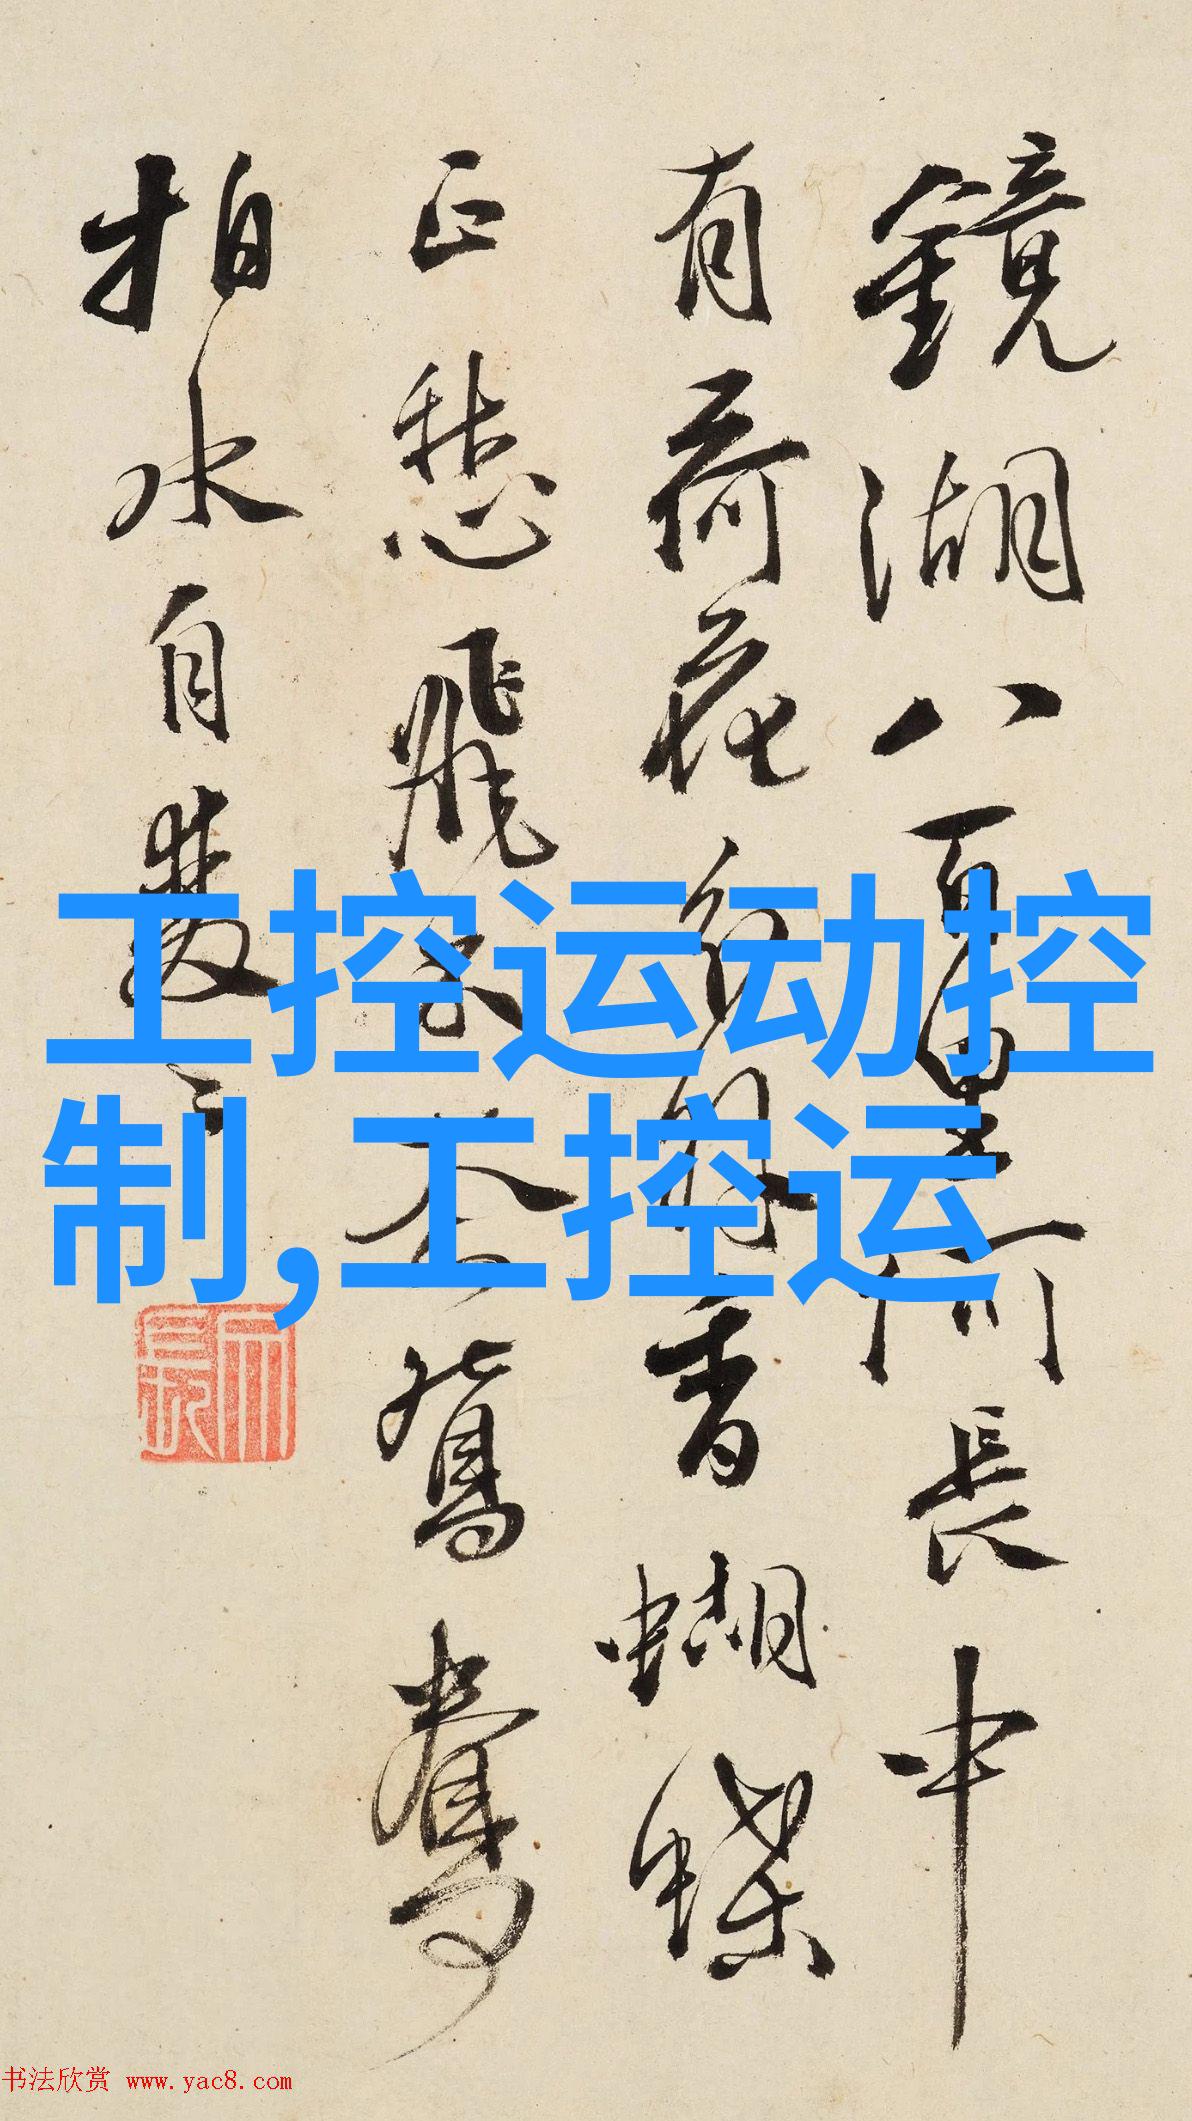 鏡湖八百里何長中
有荷花分香蝴蝶
正愁飛鴛鴦
拍水自雙
工控运动控
制,工控运
书法欣赏 www.yac8.com